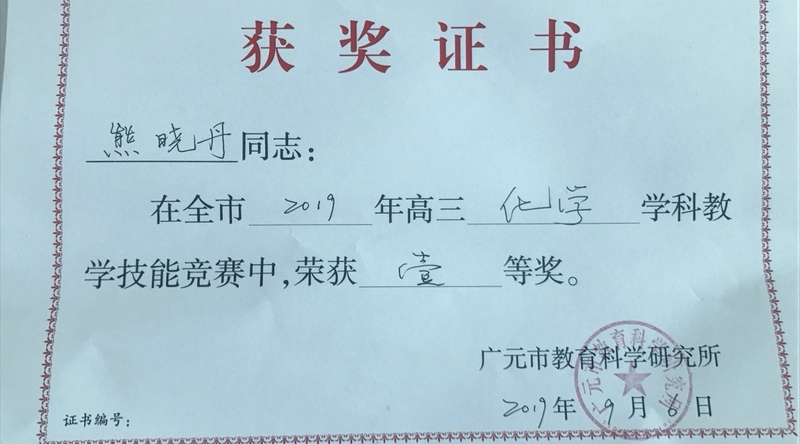 获奖证书
熊晓丹同志：
在全市2019年高三化学学科教
学技能竞赛中,荣获壹等奖。
广元市教育科学研究所
2019年9月6日
证书编号：
广元市教育科学研究所